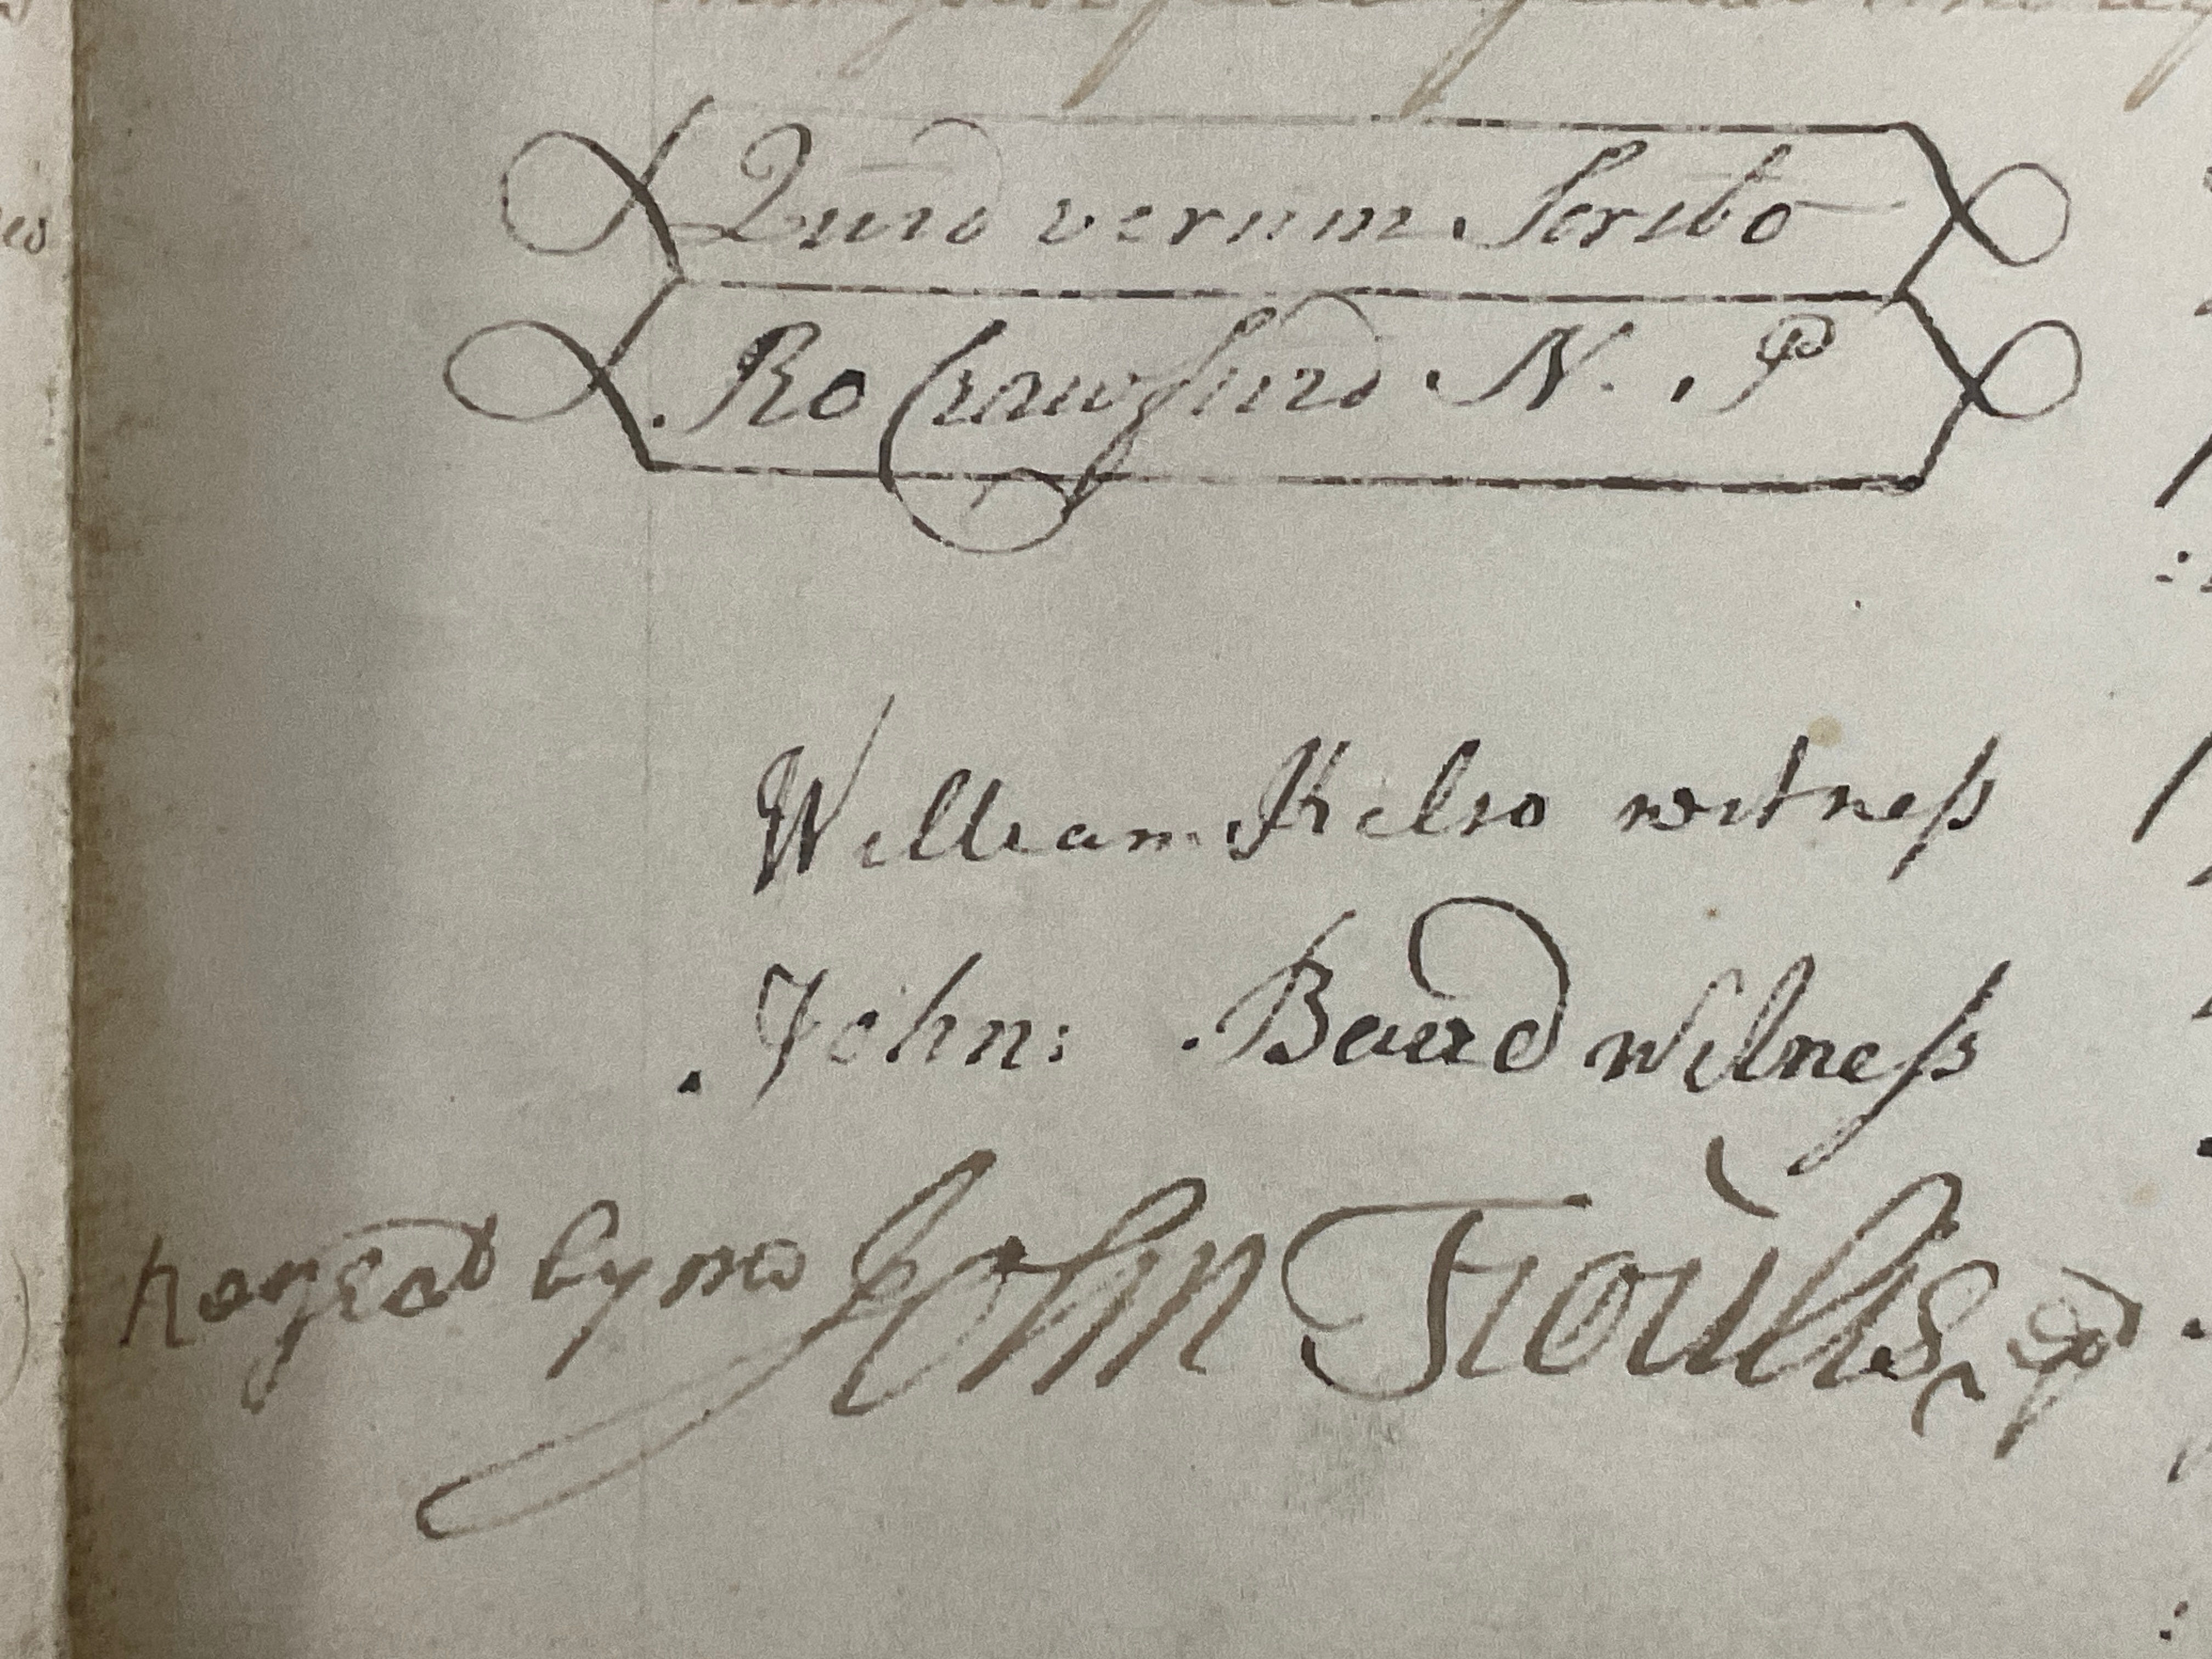 Quid verum Scribo
Ro Crawfurd N. P
William Kelso witness
John: Baird witness
by me John